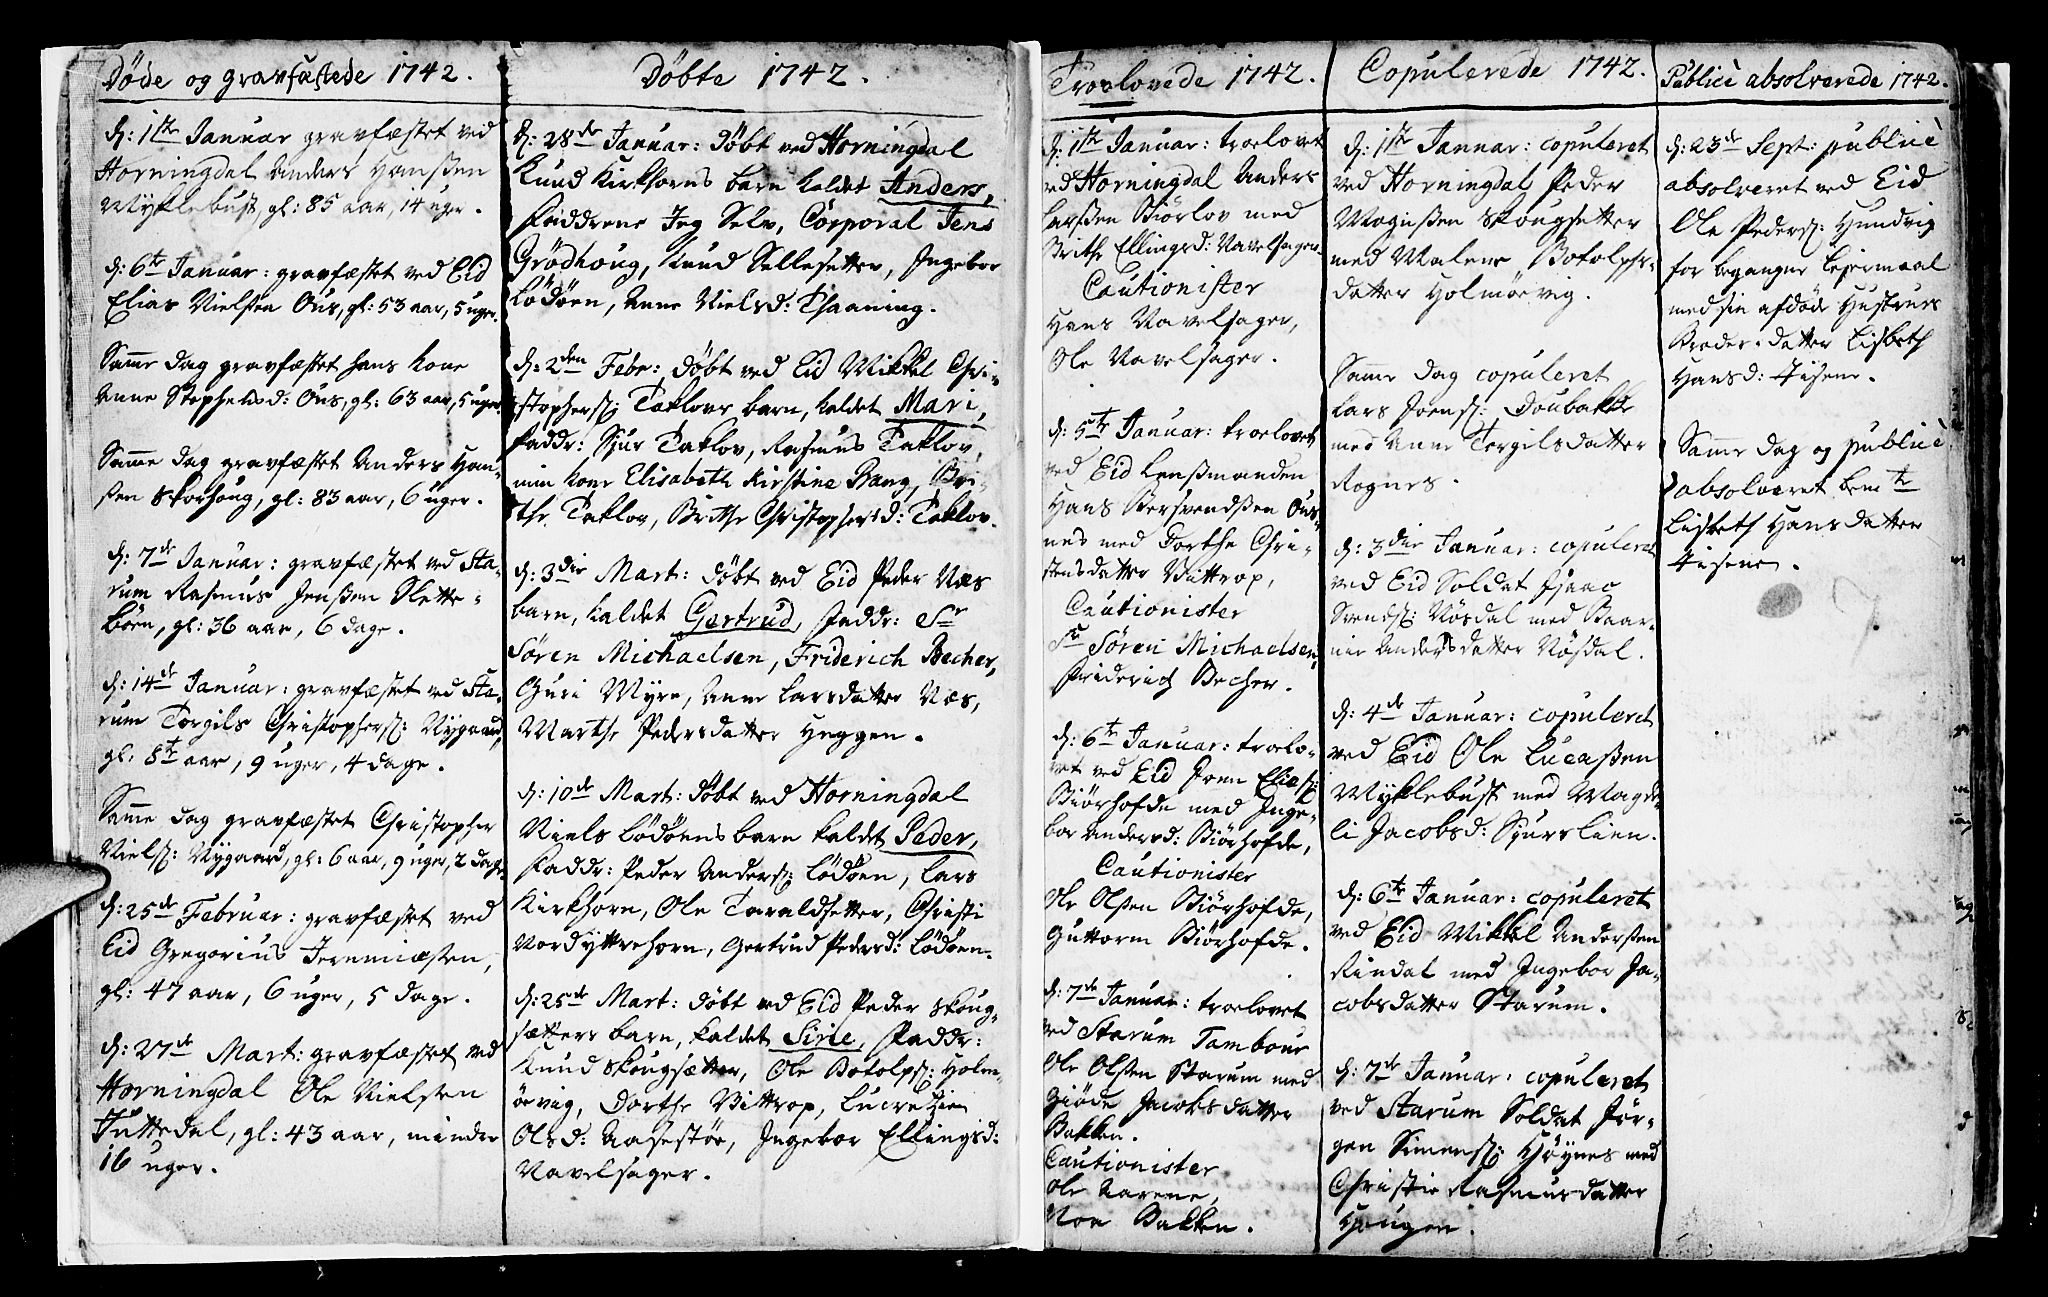 Døde og gravfæstede 1742.
d: 1ste Januar gravfæstet ved
Horningdal Anders Hanßen
Myklebust, gl: 85 aar, 14 uger.
d: 6te Januar: gravfæstet ved Eid
Elias Nielsen Øus, gl: 53 aar, 5 uger.
Samme dag gravfæstet hans kone
Anne Stephensd: Øus, gl: 63 aar, 5 uger.
Samme dag gravfæstet Anders Han-
ßen Skorhoug, gl: 83 aar, 6 uger.
d: 7de Januar: gravfæstet ved Sta-
rum Rasmus Jenßen Slette-
børn, gl: 36 aar, 6 dage.
d: 14de Januar: gravfæstet ved Sta-
rum Torgils Christophers: Nygaard,
gl. 8te aar, 9 uger, 4 dage.
Samme dag gravfæstet Christopher
Niels: Nygaard, gl: 6 aar, 9 uger, 2 dage.
d: 25de Februar: gravfæstet ved
Eid Gregorius Jeremiæsen,
gl: 47 aar, 6 uger, 5 dage.
d: 27de Mart: gravfæstet ved
Horningdal Ole Nielsen
Tuttedal, gl: 43 aar, mindre
16 uger.
Døbte 1742.
d: 28de Januar: døbt ved Horningdal
Knud Kirkhorns barn kaldet Anders,
Faddrene Jeg Selv, Corporal Jens
Grødhoug, Knud Sellesetter, Ingebor
Lødøen, Anne Nielsd: Thaaning.
d: 2den Febr: døbt ved Eid Mikkel Chri-
stophers: Taklovs barn, kaldet Mari,
Faddr: Sjur Taklov, Rasmus Taklov,
min kone Elisabeth Kirstine Bang, Bri-
the Taklov, Brithe Christophersd: Taklov.
d: 3die Mart: døbt ved Eid Peder Næs
barn, kaldet Gertrud, Faddr: Sr
Søren Michaelsen, Friderich Becher,
Guri Myre, Anne Larsdatter Næs,
Marthe Pedersdatter Heggen.
d: 10de Mart: døbt ved Horningdal
Niels Lødøens barn kaldet Peder,
Faddr: Peder Anders: Lødøen, Lars
Kirkhorn, Ole Taraldsetter, Christi
Nordyttrehorn, Gertrud Pedersd: Lødøen.
d: 25de Mart: døbt ved Eid Peder Skoug-
sætters barn, kaldet Sirie, Faddr:
Knud Skougsætter, Ole Botolps: Holm-
øevig, Dorthe Vittrop, Lucretzie
Olsd: Aasestøe, Ingebor Ellingsd:
Navelsager.
Troelovede 1742.
d: 1ste Januar: troelovet
ved Horningdal Anders
Larßen Biørlov med
Brithe Ellingsd: Navelsager.
Cautionister
Hans Navelsager,
Ole Navelsager.
d: 5te Januar: troelovet
ved Eid Lensmanden
Hans Bersvendßen Øus-
nes med Dorthe Chri-
stensdatter Vittrop,
Cautionister
Sr Søren Michaelsen,
Friderich Becher.
d: 6te Januar: troelo-
vet ved Eid Joen Elies:
Biørhofde med Inge-
bor Andersd: Biørhofde,
Cautionister
Ole Olßen Biørhofde,
Guttorm Biørhofde.
d: 7de Januar: troelovet
ved Starum Tambour
Ole Olsen Starum med
Giøde Jacobsdatter
Bakken.
Cautionister
Ole Aarene,
Noe Bakken.
Copulerede 1742.
d: 1ste Januar: copuleret
ved Horningdal Peder
Mogensen Skougsetter
med Malene Botolphs-
datter Holmøevig.
Samme dag copuleret
Lars Joens: Doubakke
med Anne Torgilsdatter
Rognes.
d: 3die Januar: copuleret
ved Eid Soldat Isaac
Svends: Nøsdal med Baar-
nie Andersdatter Nøsdal.
d: 4de Januar: copuleret
ved Eid Ole Lucaßen
Myklebust med Magde-
li Jacobsd: Sjurslien.
d: 6te Januar: copuleret
ved Eid Mikkel Anderßen
Rindal med Ingebor Ja-
cobsdatter Starum.
d: 7de Januar: copuleret
ved Starum Soldat Jør-
gen Simens: Hjøynes med
Christie Rasmusdatter
Haugen.
Publicè absolverede 1742.
d: 23de Sept: publicè
absolveret ved Eid
Ole Peders: Hundvig
for begangne Lejermaal
med sin afdøde Hustrues
Broder-datter Lisbeth
Hansd: Hisene.
Samme dag og publicè
absolveret bemte
Lisbeth Hansdatter
Hisene.